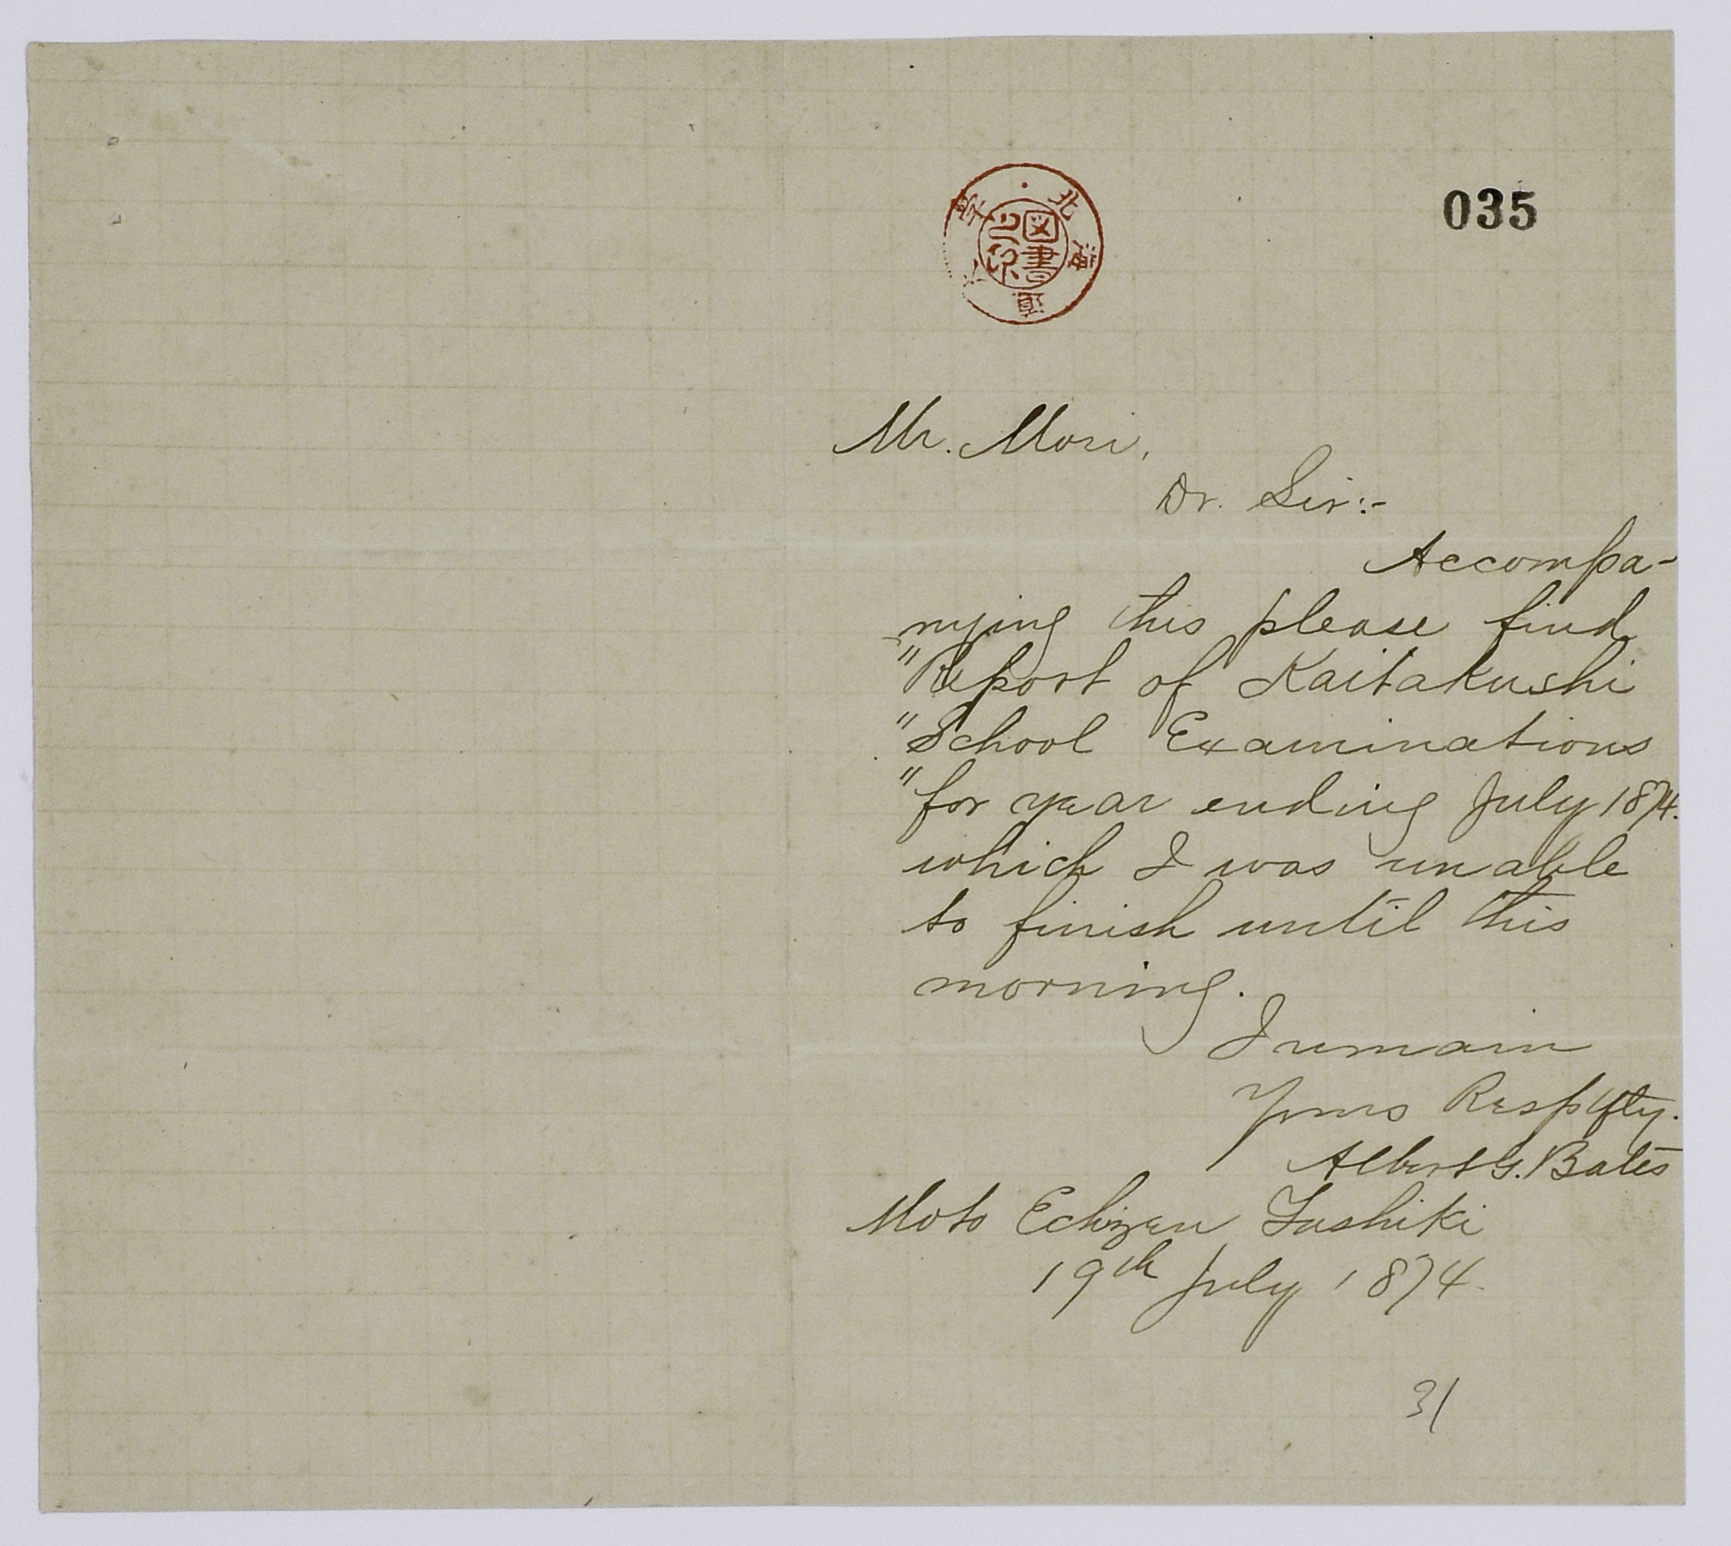 035
北海道大學
図書之印
Mr. Mori,
Dr. Sir:-
Accompa-
nying this please find
"Report of Kaitakushi
"School Examinations
"for year ending July 1874.
which I was unable
to finish until this
morning.
I remain
Yours Respctfly.
Albert G. Bates
Moto Echizen Yashiki
19th July 1874.
31